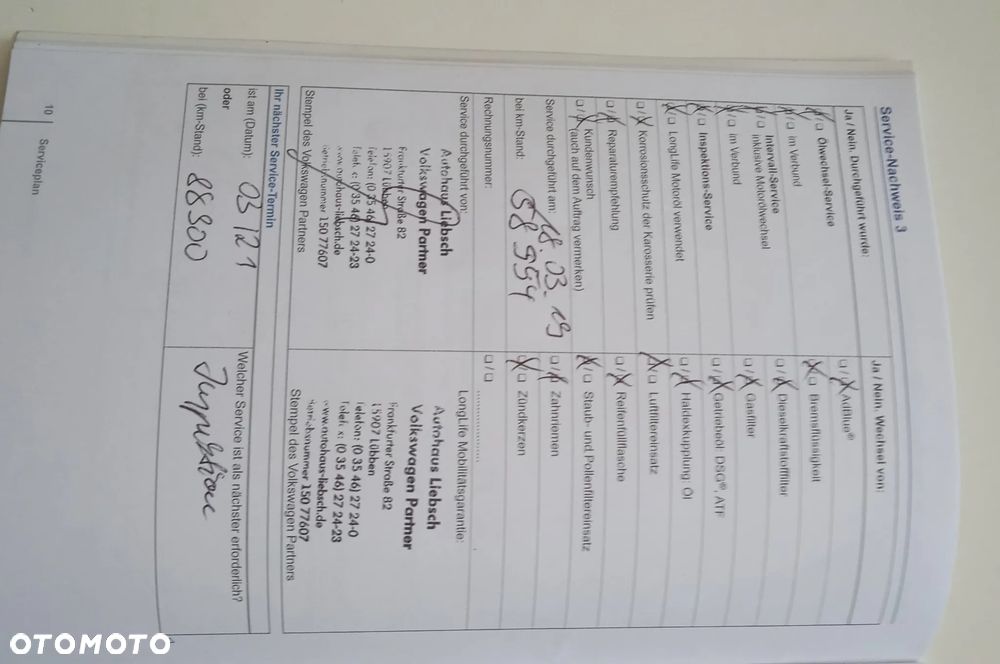 Service-Nachweis 3
Ja / Nein. Durchgeführt wurde:
Ölwechsel-Service
im Verbund
Intervall-Service
inklusive Motorölwechsel
im Verbund
Inspektions-Service
LongLife Motoröl verwendet
Korrosionsschutz der Karosserie prüfen
Reparaturempfehlung
Kundenwunsch
(auch auf dem Auftrag vermerken)
Service durchgeführt am: 18.03.19
bei km-Stand: 58 954
Rechnungsnummer:
Service durchgeführt von:
Autohaus Liebsch
Volkswagen Partner
Frankfurter Straße 82
15907 Lübben
Telefon: (0 35 46) 27 24-0
(0 35 46) 27 24-23
www.autohaus-liebsch.de
Betriebsnummer 150 77607
Stempel des Volkswagen Partners
Ja / Nein. Wechsel von:
AdBlue®
Bremsflüssigkeit
Dieselkraftstofffilter
Gasfilter
Getriebeöl: DSG®, ATF
Haldexkupplung: Öl
Luftfiltereinsatz
Reifenfüllflasche
Staub- und Pollenfiltereinsatz
Zahnriemen
Zündkerzen
LongLife Mobilitätsgarantie:
Autohaus Liebsch
Volkswagen Partner
Frankfurter Straße 82
15907 Lübben
Telefon: (0 35 46) 27 24-0
(0 35 46) 27 24-23
www.autohaus-liebsch.de
Betriebsnummer 150 77607
Stempel des Volkswagen Partners
Ihr nächster Service-Termin
ist am (Datum): 03/21
oder
bei (km-Stand): 88900
Welcher Service ist als nächster erforderlich?
Inspektion
10 Serviceplan
OTOMOTO